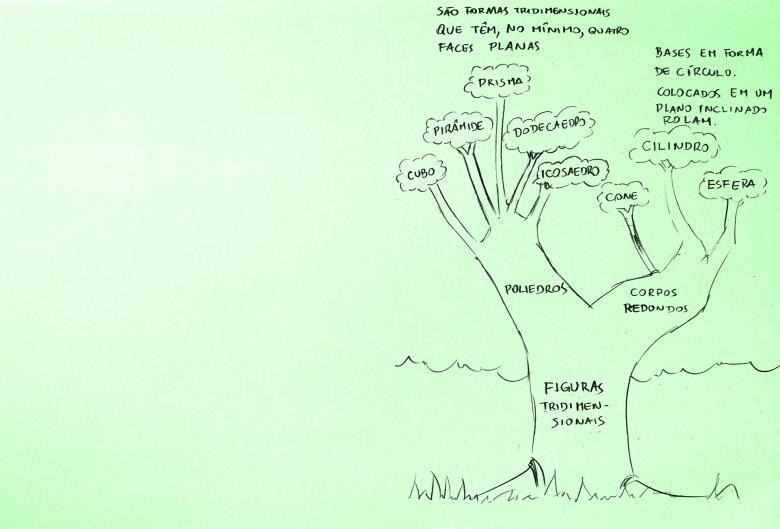 SÃO FORMAS TRIDIMENSIONAIS
QUE TÊM, NO MÍNIMO, QUATRO
FACES PLANAS
BASES EM FORMA
DE CÍRCULO.
COLOCADOS EM UM
PLANO INCLINADO
ROLAM.
PRISMA
PIRÂMIDE
DODECAEDRO
CUBO
ICOSAEDRO
CILINDRO
CONE
ESFERA
POLIEDROS
CORPOS
REDONDOS
FIGURAS
TRIDIMEN-
SIONAIS